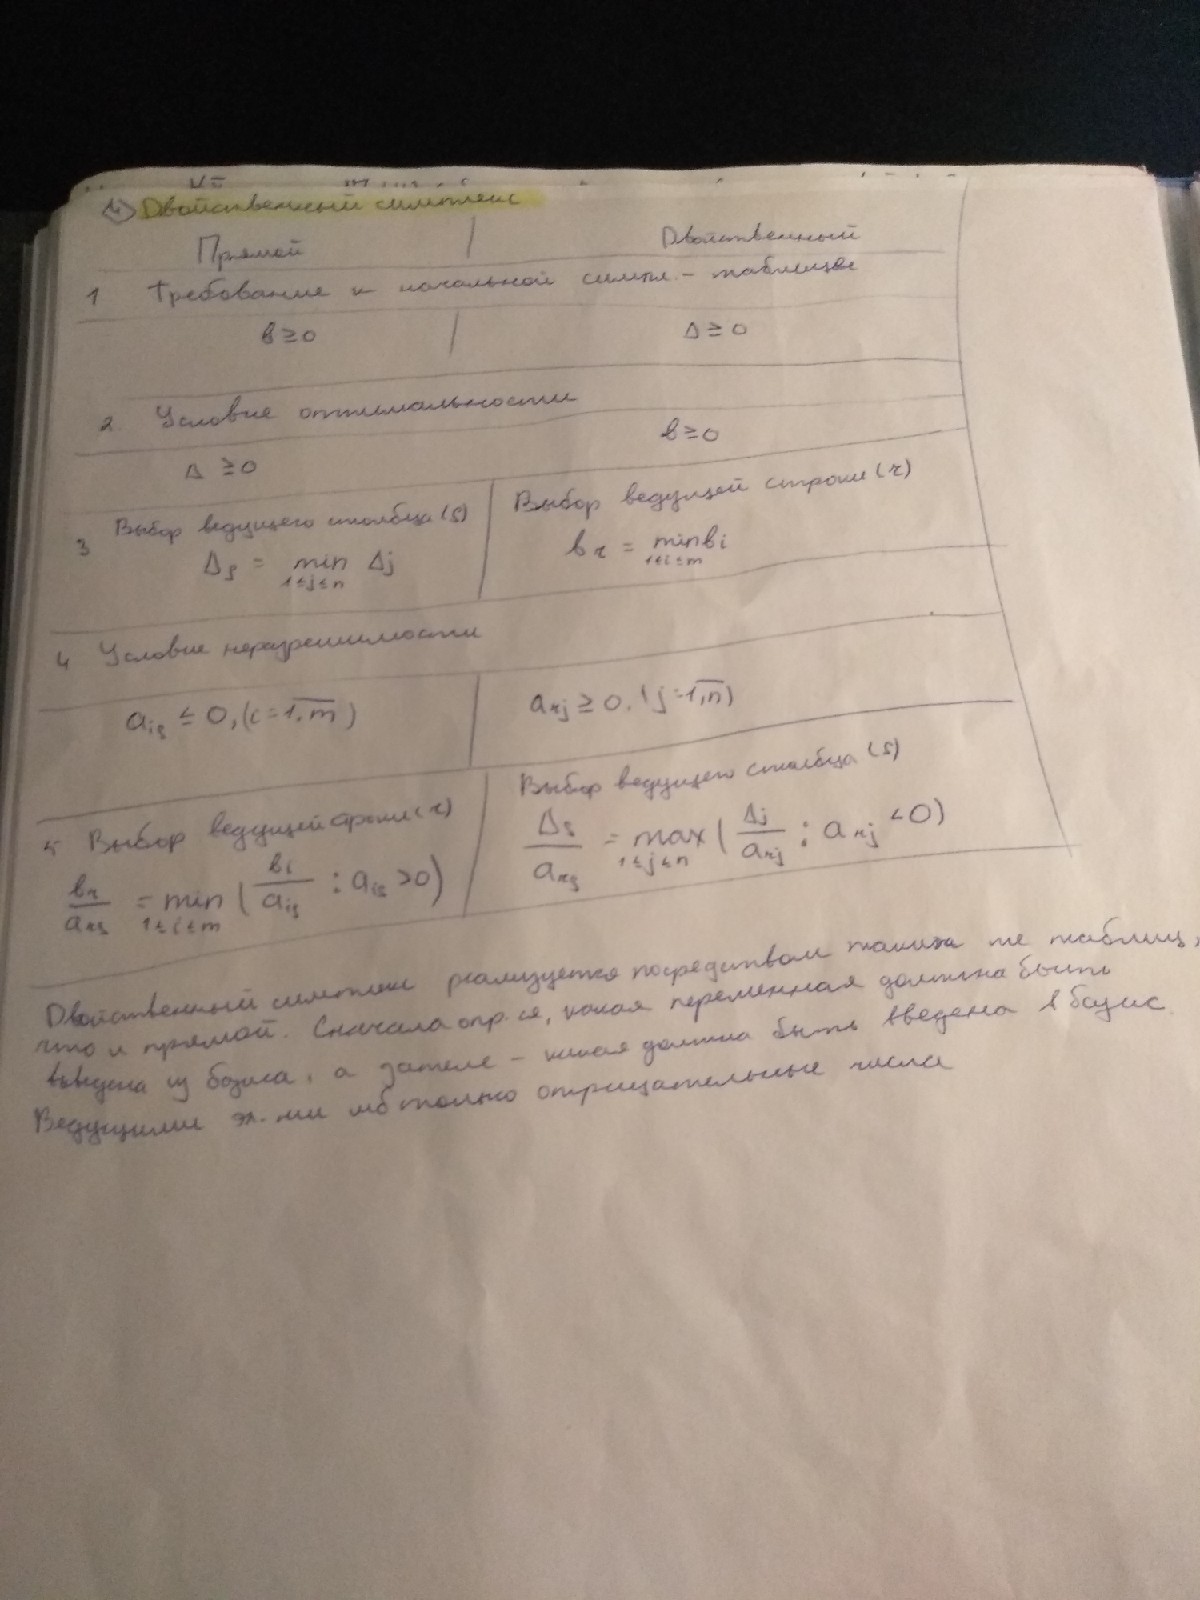 4 Двойственный симплекс
Прямой Двойственный
1 Требование к начальной симпл. - таблице
в ≥ 0 Δ ≥ 0
2. Условие оптимальности
Δ ≥ 0 в ≥ 0
3 Выбор ведущего столбца (s) Выбор ведущей строки (r)
Δs = min Δj br = min вi
1≤j≤n 1≤i≤m
4 Условие неразрешимости
ais ≤ 0, (i = 1,m) arj ≥ 0, (j = 1,n)
5 Выбор ведущей строки (r) Выбор ведущего столбца (s)
вr/ars = min (вi/ais : ais > 0) Δs/ars = max (Δj/arj : arj < 0)
1≤i≤m 1≤j≤n
Двойственный симплекс реализуется посредством таких же таблиц,
что и прямой. Сначала опр-ся, какая переменная должна быть
выведена из базиса, а затем - какая должна быть введена в базис.
Ведущими эл-ми мб только отрицательные числа